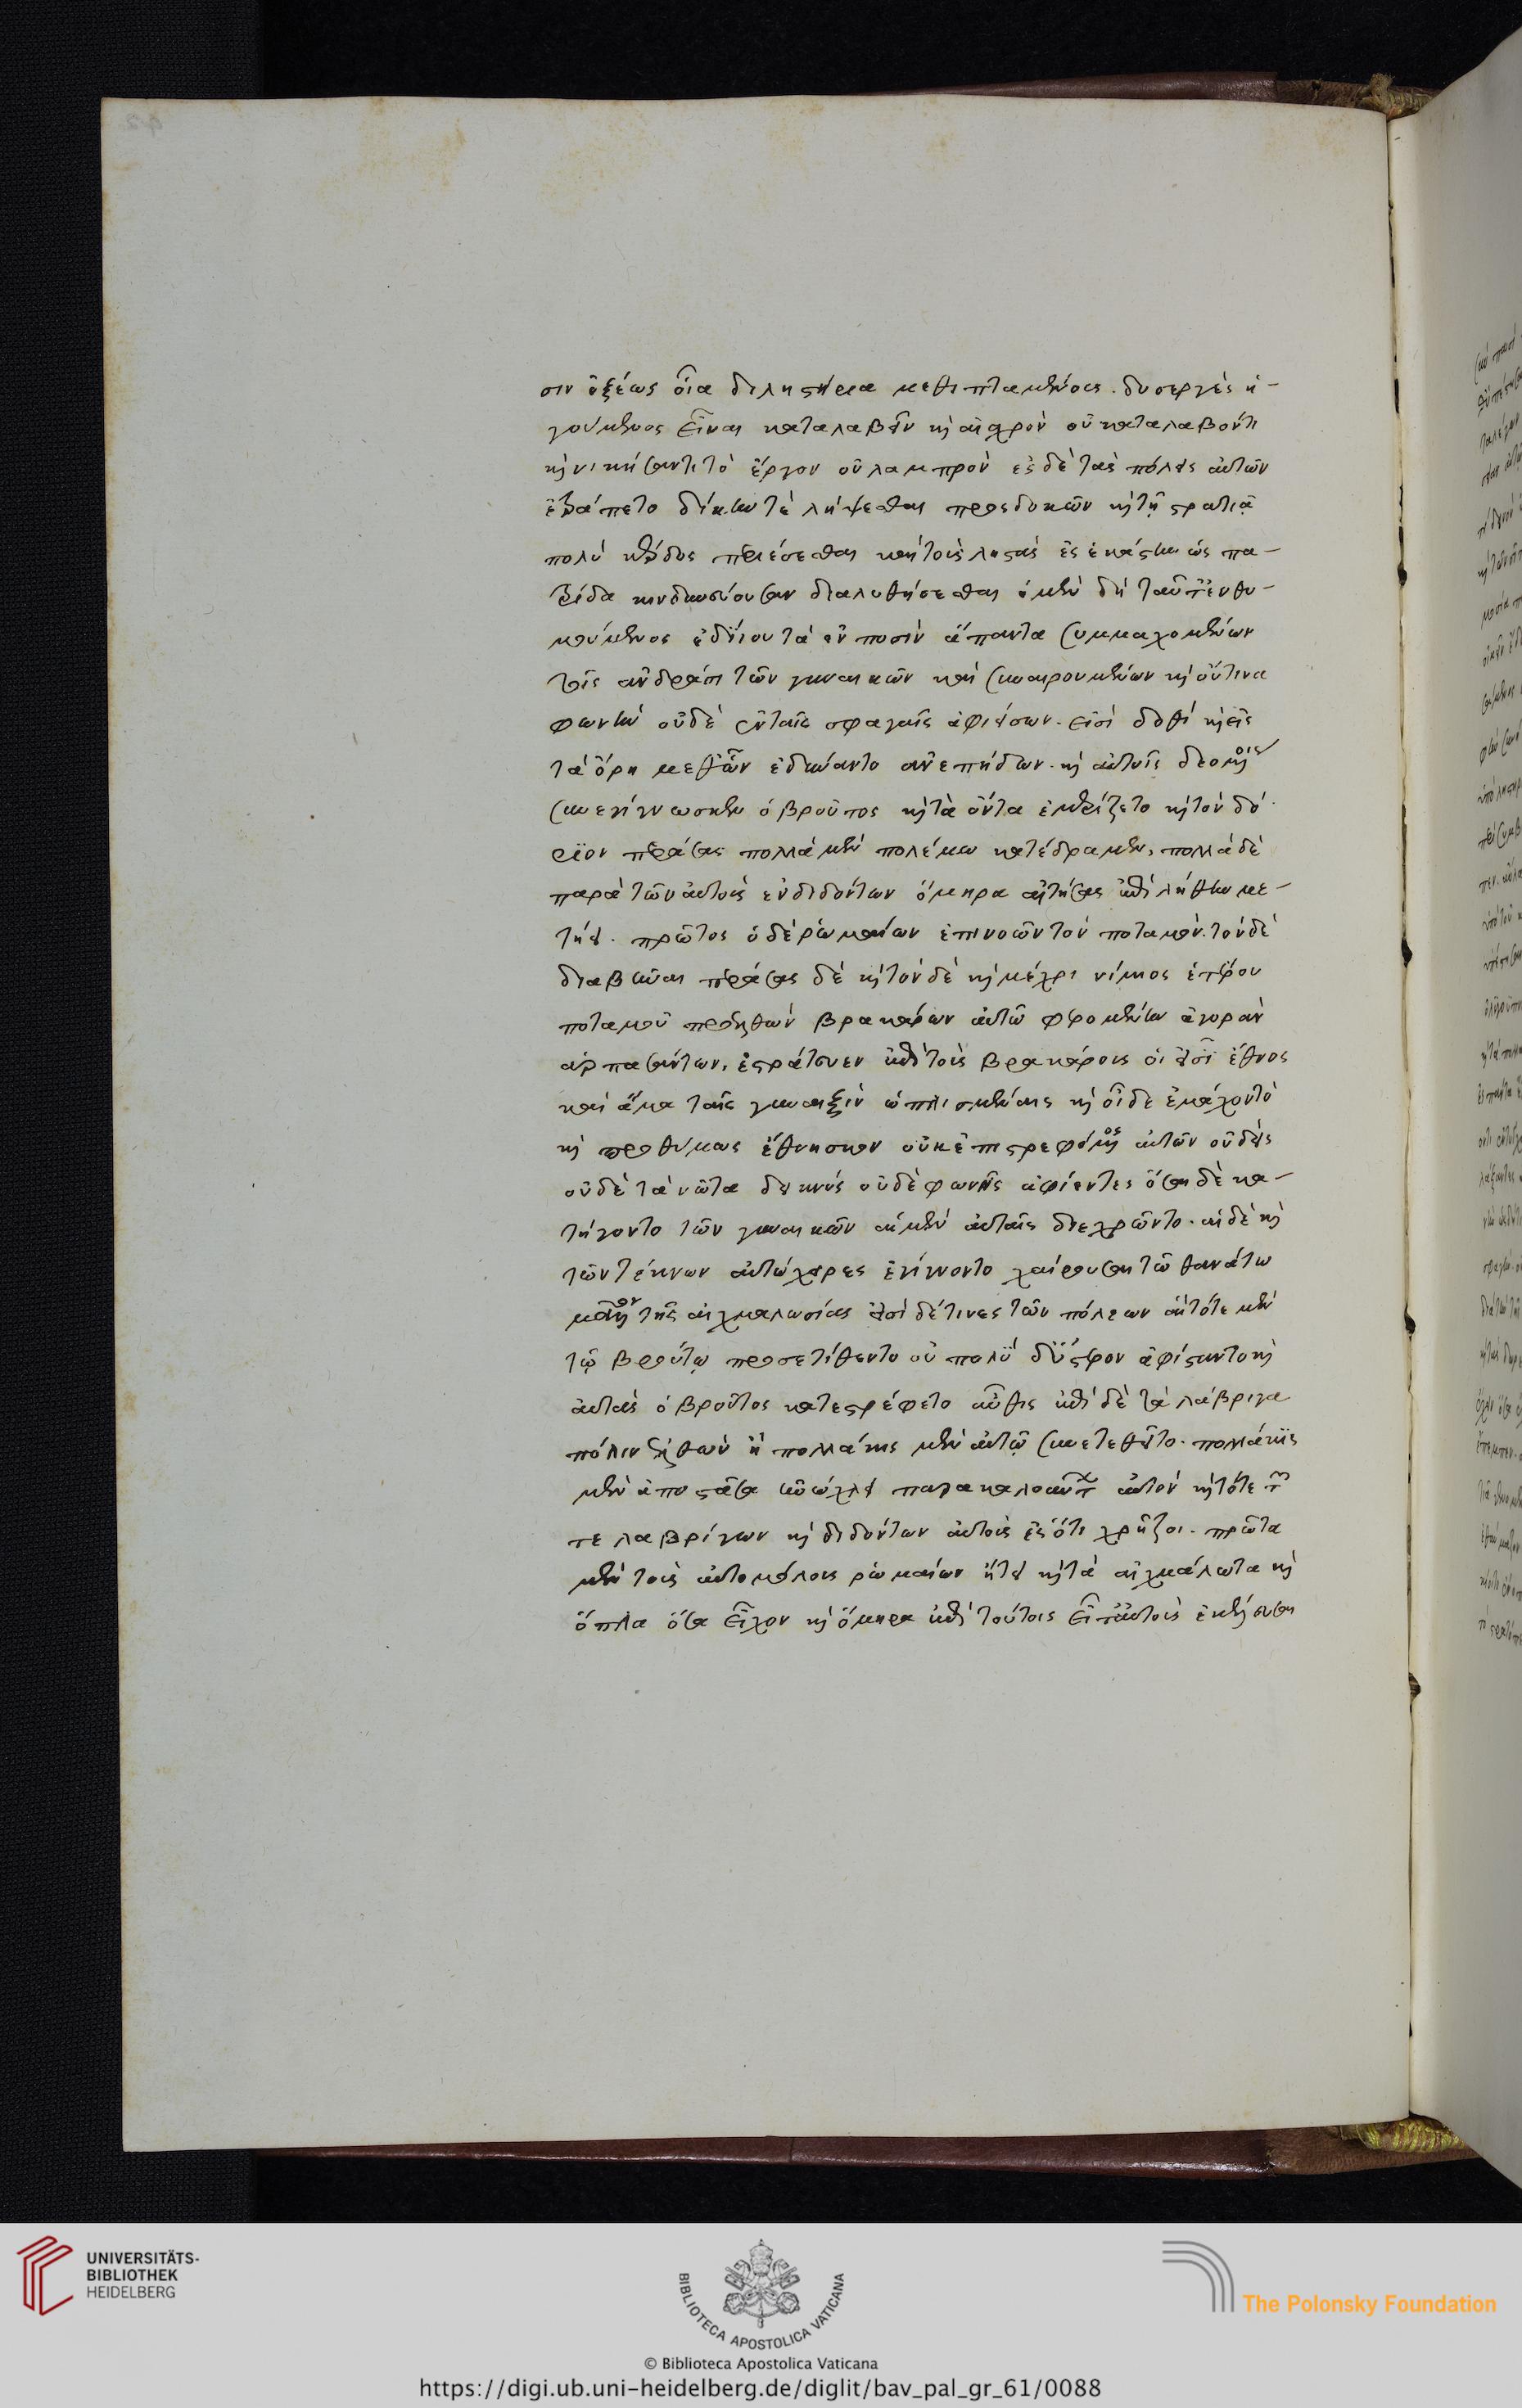 σιν ὀξέως οἷα δὴ ληστήρια μεθιπταμένους. δυσεργὲς ἡ-
γούμενος εἶναι καταλαβεῖν κὶ αἰσχρὸν οὐ καταλαβόντι
κὶ νικήσαντι τὸ ἔργον οὐ λαμπρὸν ἐς δὲ τὰς πόλεις αὐτῶν
ἐτράπετο δίκην τὲ λήψεσθαι προσδοκῶν κὶ τῇ στρατιᾷ
πολὺ κέρδος περιέσεσθαι καὶ τοὺς ληστὰς ἐς ἑκάστην ὡς πα-
τρίδα κινδυνεύουσαν διαλυθήσεσθαι ὁ μὲν δὴ ταῦτ᾽ ἐνθυ-
μούμενος ἐδήϊου τὰ ἐν ποσὶν ἅπαντα συμμαχομένων
τοῖς ἀνδράσι τῶν γυναικῶν καὶ συναιρουμένων κὶ οὔτινα
φωνὴν οὐδὲ ἐν ταῖς σφαγαῖς ἀφιεισῶν. εἰσὶ δ᾽ οἳ κὶ εἰς
τὰ ὄρη μεθ᾽ ὧν ἐδύναντο ἀνεπήδων. κὶ αὐτοῖς δεομένοις
συνεγίγνωσκεν ὁ βροῦτος κὶ τὰ ὄντα ἐμερίζετο κὶ τὸν δό-
ριον περάσας πολλὰ μὲν πολέμω κατέδραμεν, πολλὰ δὲ
παρὰ τῶν αὐτοὺς ἐνδιδόντων ὅμηρα αἰτήσας ἐπὶ λήθην με-
τήει. πρῶτος ὁ δὲ ῥωμαίων ἐπινοῶν τὸν ποταμὸν. τόνδε
διαβῆναι περάσας δὲ κὶ τόνδε κὶ μέχρι νίμιος ἑτέρου
ποταμοῦ προελθὼν βρακάρων αὐτῶ φερομένην ἀγορὰν
ἁρπασάντων, ἐστράτευεν ἐπὶ τοὺς βρακάρους οἵ εἰσὶ ἔθνος
καὶ ἅμα ταῖς γυναιξὶν ὡπλισμέναις κὶ οἵδε ἐμάχοντο
κὶ προθύμως ἔθνησκον οὐκ ἐπιστρεφόμενος αὐτῶν οὐδεὶς
οὐδὲ τὰ νῶτα δεικνὺς οὐδὲ φωνὰς ἀφίεντες ὅσαι δὲ κα-
τήγοντο τῶν γυναικῶν αἱ μὲν αὐτὰς διεχρῶντο. αἱ δὲ κὶ
τῶν τέκνων αὐτόχειρες ἐγίγνοντο χαίρουσαι τῶ θανάτω
μᾶλλον τῆς αἰχμαλωσίας εἰσὶ δέ τινες τῶν πόλεων αἳ τότε μὲν
τῷ βρούτῳ προσετίθεντο οὐ πολὺ δὲ ὕστερον ἀφίσταντο κὶ
αὐτὰς ὁ βροῦτος κατεστρέφετο αὖθις ἐπὶ δὲ τὰ λάβριγα
πόλιν ἐλθὼν ἣ πολλάκις μὲν αὐτῷ συνετεθεῖτο. πολλάκις
μὲν ἀποστᾶσα ἠνώχλει παρακαλούντων αὐτὸν κὶ τότε τῶν
τε λαβρίγων κὶ διδόντων αὐτοὺς ἐς ὅτι χρήζοι. πρῶτα
μὲν τοὺς αὐτομόλους ῥωμαίων ᾔτει κὶ τὰ αἰχμάλωτα κὶ
ὅπλα ὅσα εἶχον κὶ ὅμηρα ἐπὶ τούτοις εἶτ᾽ αὐτοὺς ἐκέλευσαι
UNIVERSITÄTS-
BIBLIOTHEK
HEIDELBERG
BIBLIOTECA APOSTOLICA VATICANA
The Polonsky Foundation
© Biblioteca Apostolica Vaticana
https://digi.ub.uni-heidelberg.de/diglit/bav_pal_gr_61/0088